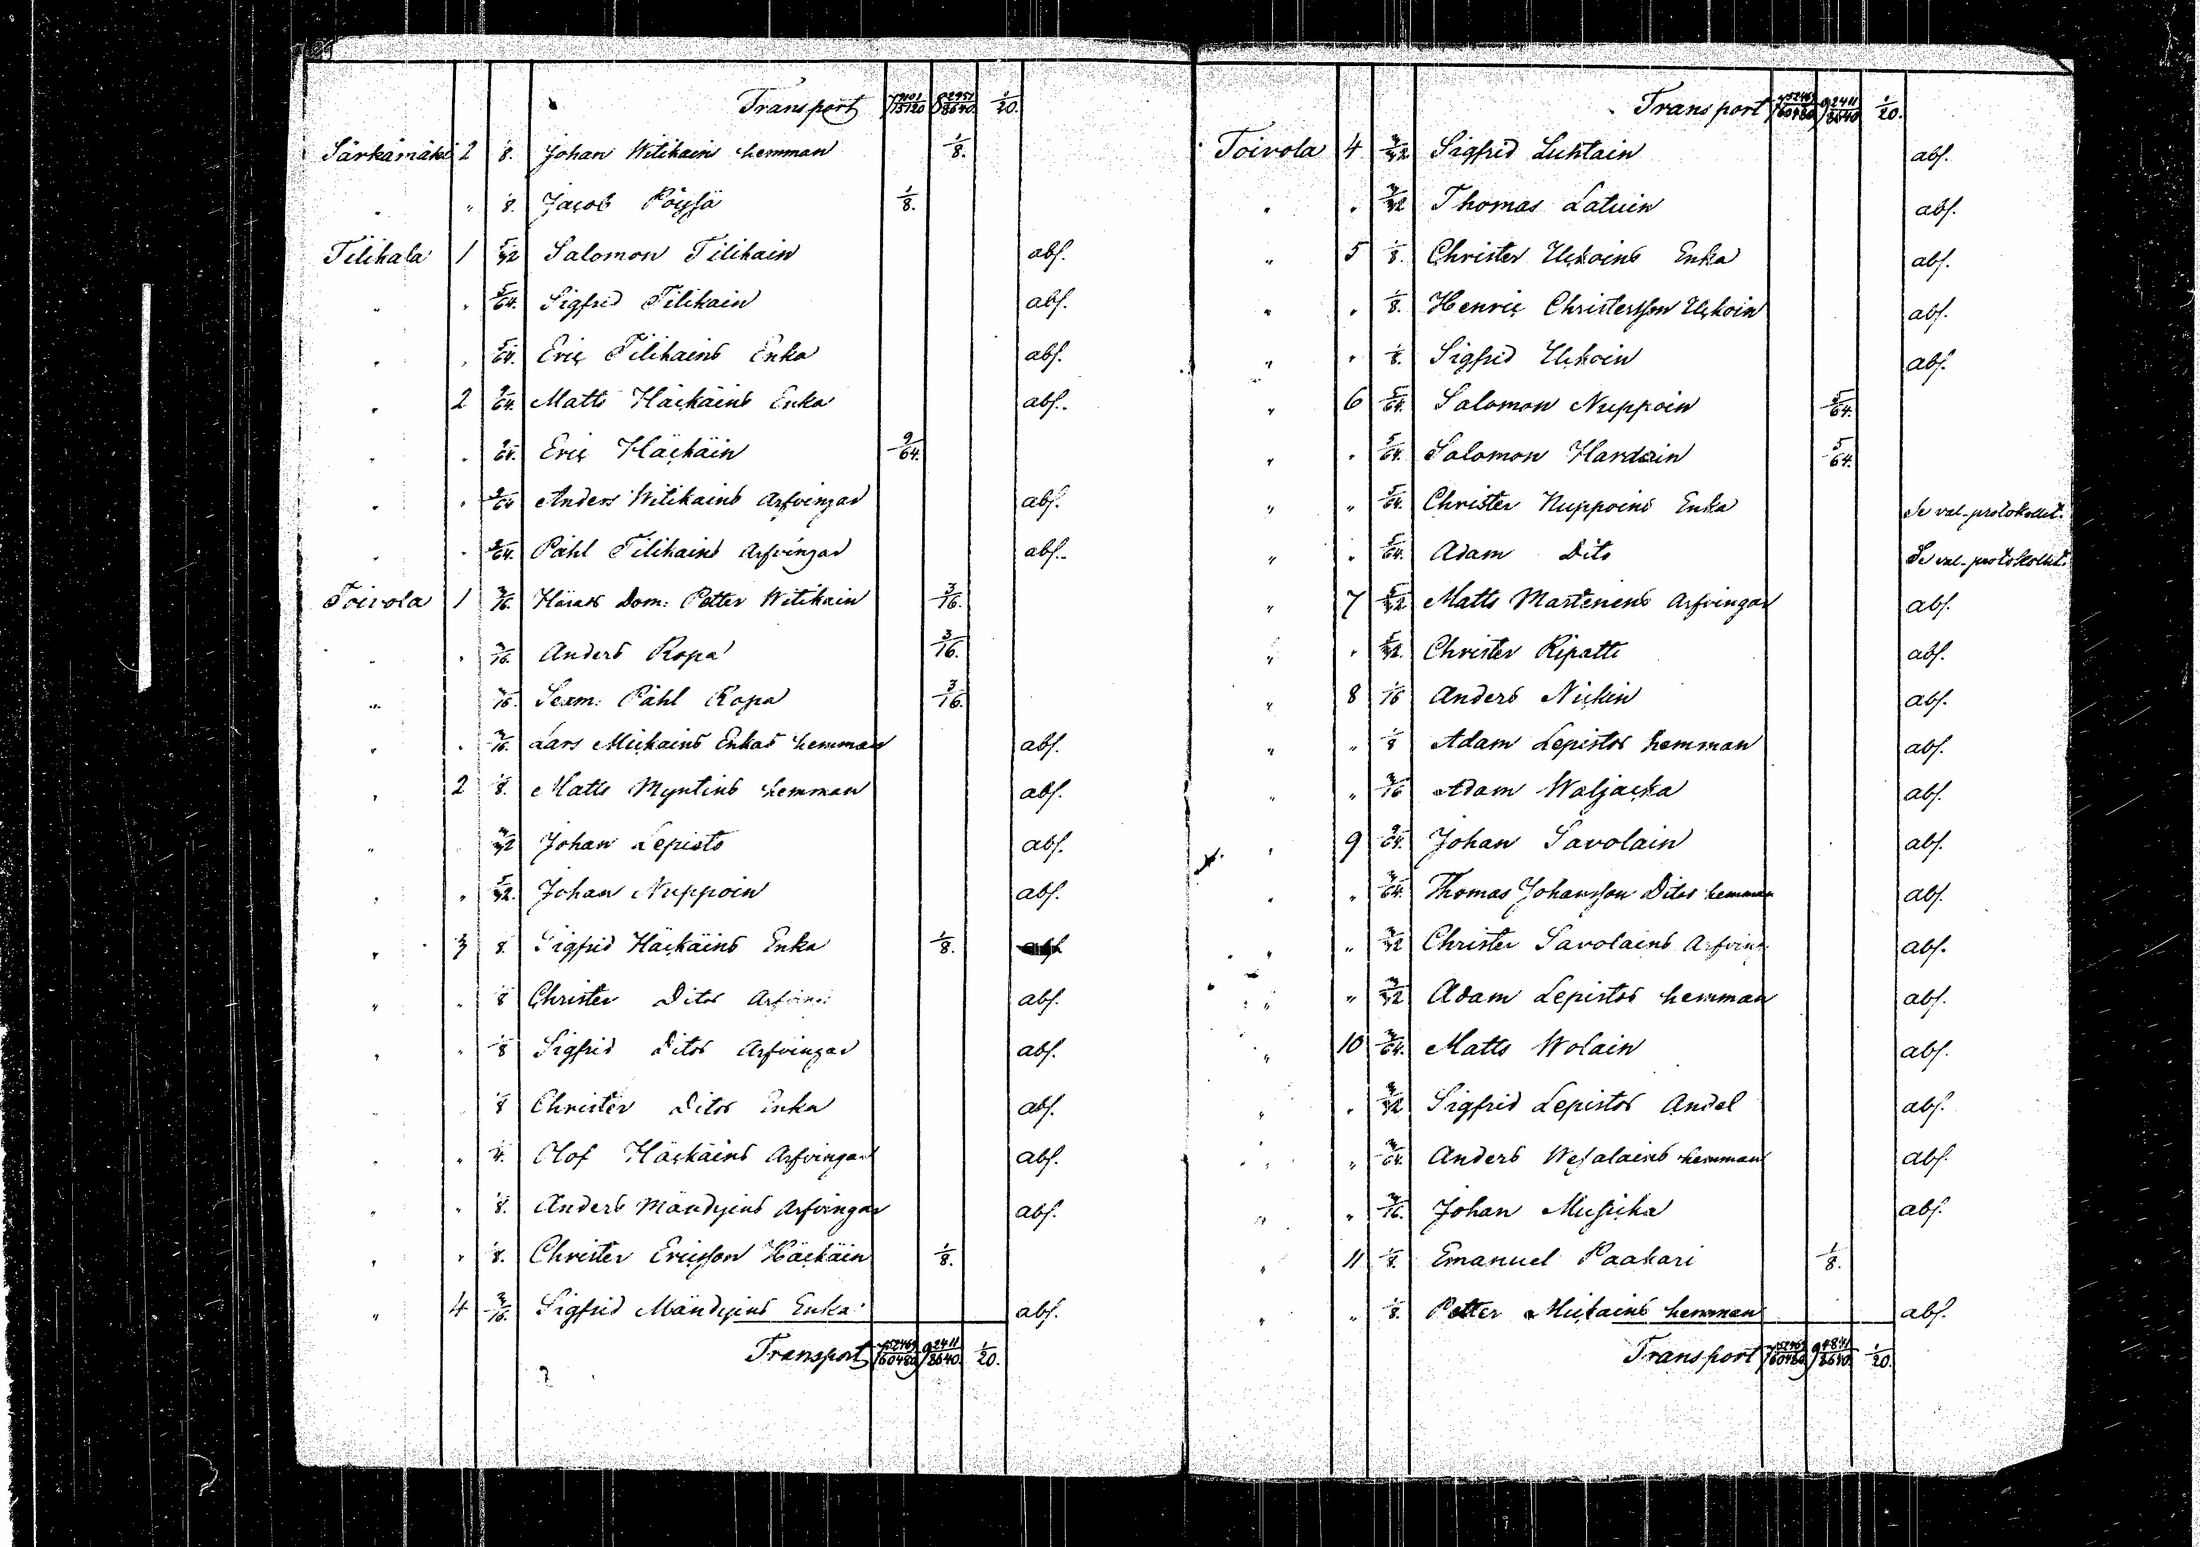 Transport 1/20.
Särkämäki 2 1/8. Johan Witikains hemman 1/8.
" " 1/8. Jacob Pöysä 1/8.
Tilikala 1 5/32 Salomon Tilikain abs.
" " 5/64. Sigfrid Tilikain abs.
" " 5/64. Eric Tilikains Enka abs.
" 2 9/64. Matts Häckäins Enka abs.
" " 9/64. Eric Häckäin 9/64.
" " 9/64 Anders Witikains Arfvingar abs.
" " 9/64. Påhl Tilikains Arfvingar abs.
Toivola 1 3/16. Härads Dom: Petter Witikain 3/16.
" " 3/16. Anders Ropa 3/16.
" 3/16. Sexm: Påhl Ropa 3/16.
" " 3/16. Lars Mickains Enkas hemman abs.
" 2 1/8. Matts Myntins hemman abs.
" 3/32 Johan Lepistö abs.
" " 5/32. Johan Nuppoin abs.
" 3 1/8. Sigfrid Häckäins Enka 1/8.
" " 1/8 Christer Ditos abs.
" " 1/8 Sigfrid Ditos Arfvingar abs.
" 1/8 Christer Ditos Enka abs.
" " 1/4. Olof Häckäins Arfvingar abs.
" " 1/8. Anders Mändyins Arfvingar abs.
" " 1/8. Christer Ericsson Häckäin 1/8.
" 4 3/16. Sigfrid Mändyins Enka abs.
Transport 52469/60480 9 2411/8640. 1/20.
Transport 52469/60480 9 2411/8640 1/20.
Toivola 4 3/32 Sigfrid Luhtain abs.
" " 3/32 Thomas Latuin abs.
" 5 1/8. Christer Uckoins Enka abs.
" " 1/8. Henric Christersson Uckoin abs.
" " 1/8. Sigfrid Uckoin abs.
" 6 5/64. Salomon Nuppoin 5/64.
" " 5/64. Salomon Hardain 5/64.
" " 5/64. Christer Nuppoins Enka Se val-protokollet.
" " 5/64. Adam Dito Se val-protokollet.
" 7 5/32 Matts Martinens Arfvingar abs.
" " 5/32. Christer Ripatti abs.
" 8 1/16 Anders Nickin abs.
" " 1/8 Adam Lepistös hemman abs.
" " 3/16 Adam Waljacka abs.
" 9 9/64. Johan Savolain abs.
" " 3/64. Thomas Johansson Ditos hemman abs.
" " 3/32 Christer Savolains abs.
" " 3/32 Adam Lepistös hemman abs.
" 10 3/64. Matts Wolain abs.
" " 3/32 Sigfrid Lepistös Andel abs.
" " 3/64. Anders Wesalains hemman abs.
" " 3/16. Johan Musicka abs.
" 11 1/8. Emanuel Paakari 1/8.
" " 1/8. Petter Mickains hemman abs.
Transport 52469/60480 9 4841/8640. 1/20.